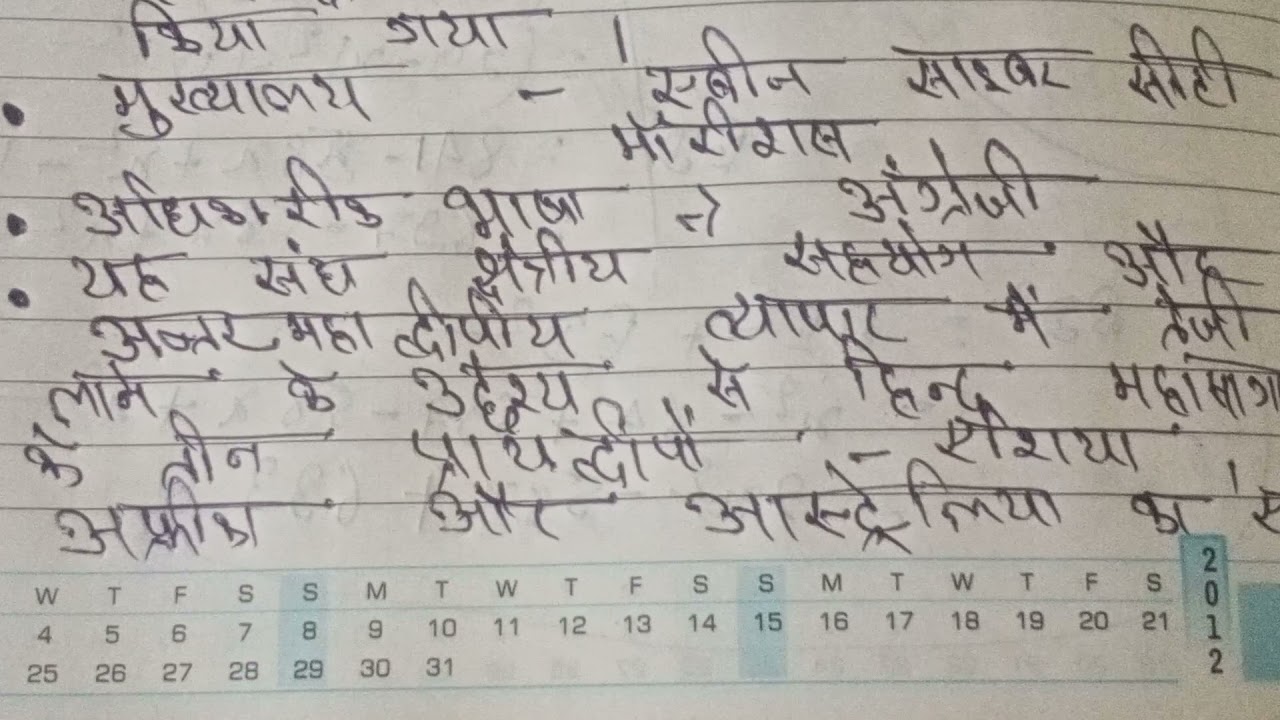 किया गया ।
• मुख्यालय - एबीन साइबर सीटी
मॉरीशस
• अधिकारीक भाषा → अंग्रेजी
• यह संघ क्षेत्रीय सहयोग और
अन्तर महा द्वीपीय व्यापार में तेजी
लाने के उद्देश्य से हिन्द महासाग
के तीन प्रायद्वीपों - एशिया
अफ्रीका और आस्ट्रेलिया का
W T F S S M T W T F S S M T W T F S
4 5 6 7 8 9 10 11 12 13 14 15 16 17 18 19 20 21
25 26 27 28 29 30 31
2012